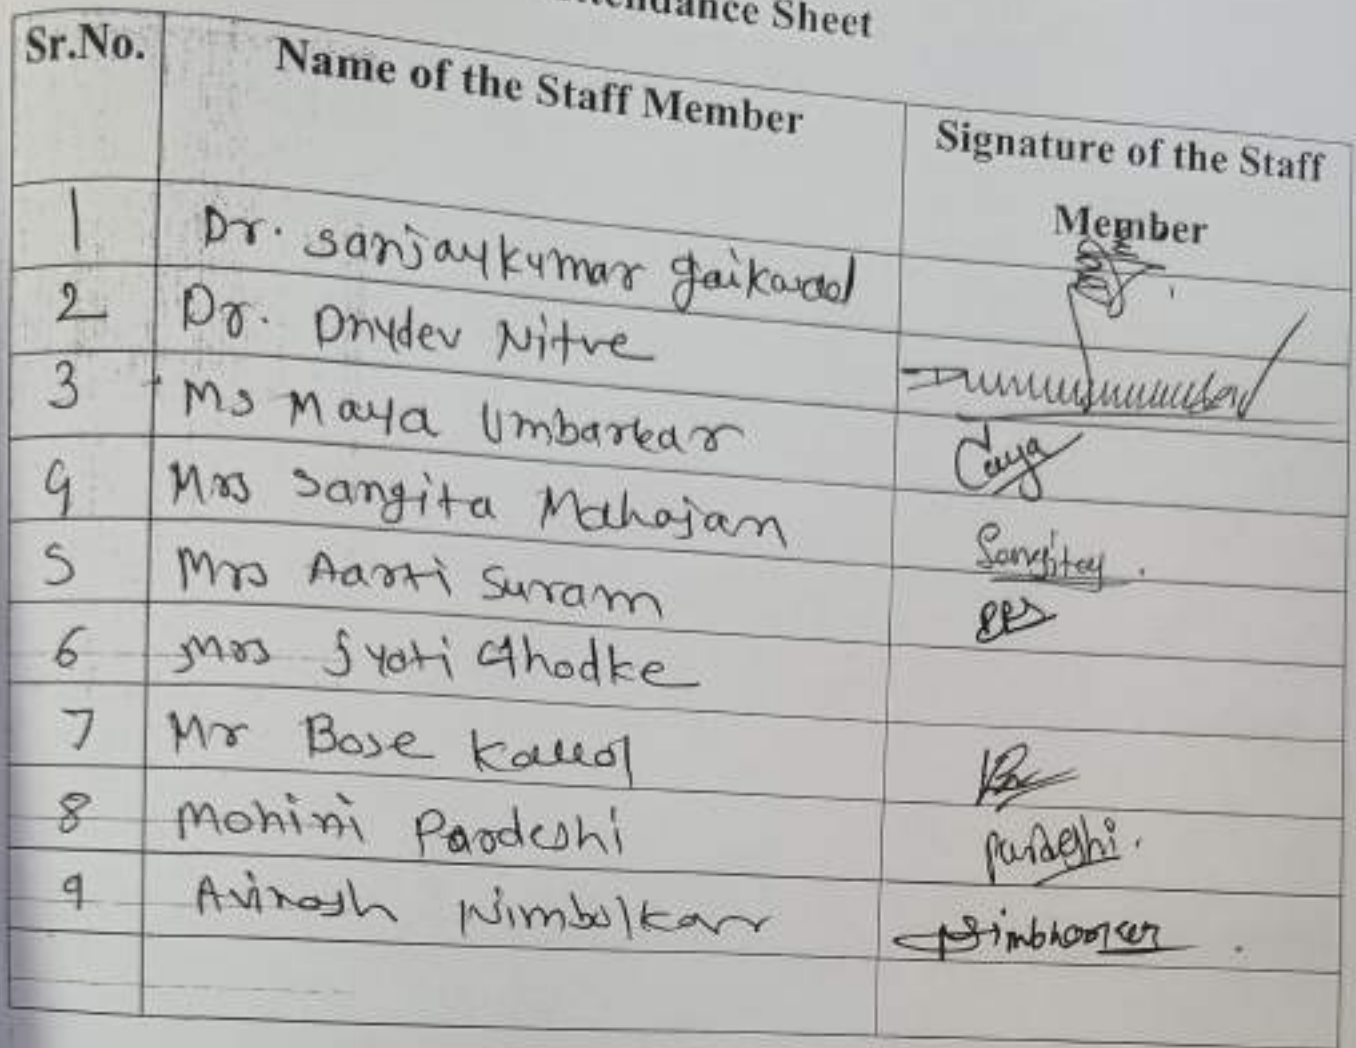 Attendance Sheet
Sr.No. Name of the Staff Member Signature of the Staff Member
1 Dr. Sanjaykumar Gaikawad
2 Dr. Dnydev Nitve
3 Ms Maya Umbarkar
4 Mrs Sangita Mahajan Sangita
5 Mrs Aarti Suram
6 Mrs Jyoti Ghodke
7 Mr Bose Kallol
8 Mohini Pardeshi Pardeshi.
9 Avinash Nimbolkar